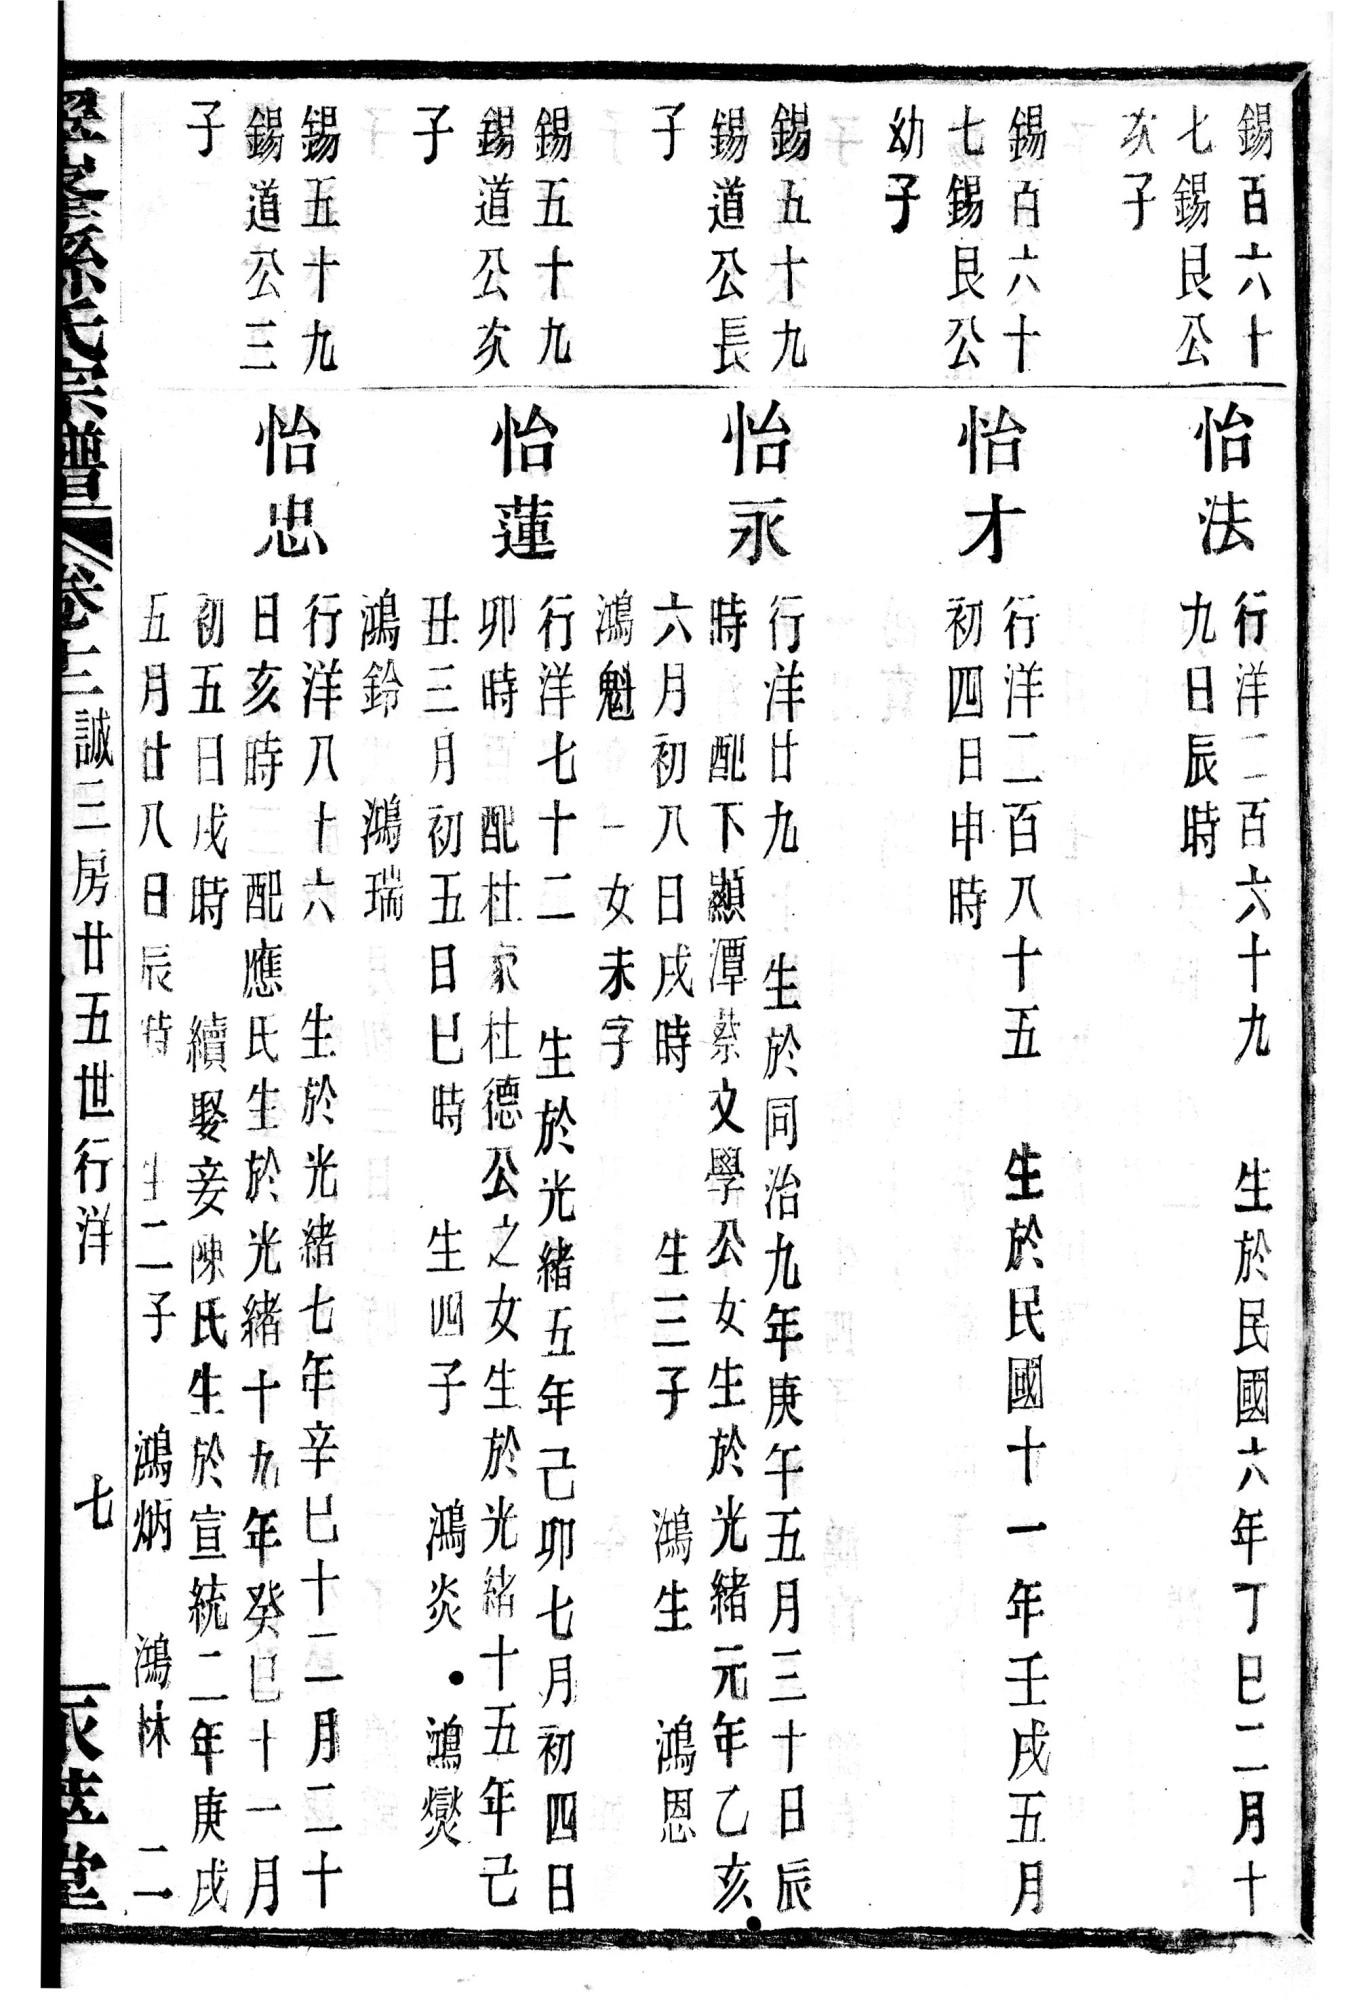 錫百六十
七錫艮公
次子
怡法
行洋二百六十九 生於民國六年丁巳二月十
九日辰時
錫百六十
七錫艮公
幼子
怡才
行洋二百八十五 生於民國十一年壬戌五月
初四日申時
錫五十九
錫道公長
子
怡永
行洋廿九 生於同治九年庚午五月三十日辰
時 配下顯潭蔡文學公女生於光緒元年乙亥
六月初八日戌時 生三子 鴻生 鴻恩
鴻魁 一女未字
錫五十九
錫道公次
子
怡蓮
行洋七十二 生於光緒五年己卯七月初四日
卯時 配杜家杜德公之女生於光緒十五年己
丑三月初五日巳時 生四子 鴻炎 鴻爕
鴻鈴 鴻瑞
錫五十九
錫道公三
子
怡忠
行洋八十六 生於光緒七年辛巳十二月二十
日亥時 配應氏生於光緒十九年癸巳十一月
初五日戌時 續娶妾陳氏生於宣統二年庚戌
五月廿八日辰時 生二子 鴻炳 鴻林 二
孫氏宗譜 卷 誠三房廿五世行洋 七 堂